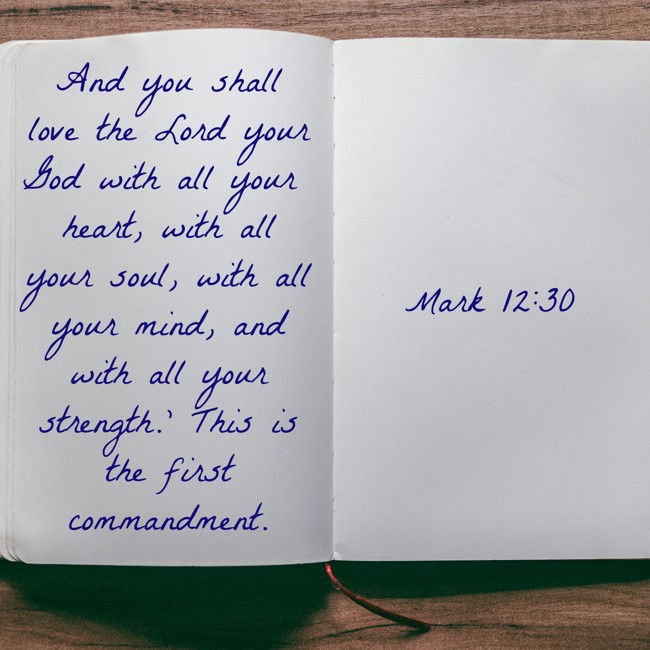 And you shall
love the Lord your
God with all your
heart, with all
your soul, with all
your mind, and
with all your
strength.' This is
the first
commandment.
Mark 12:30